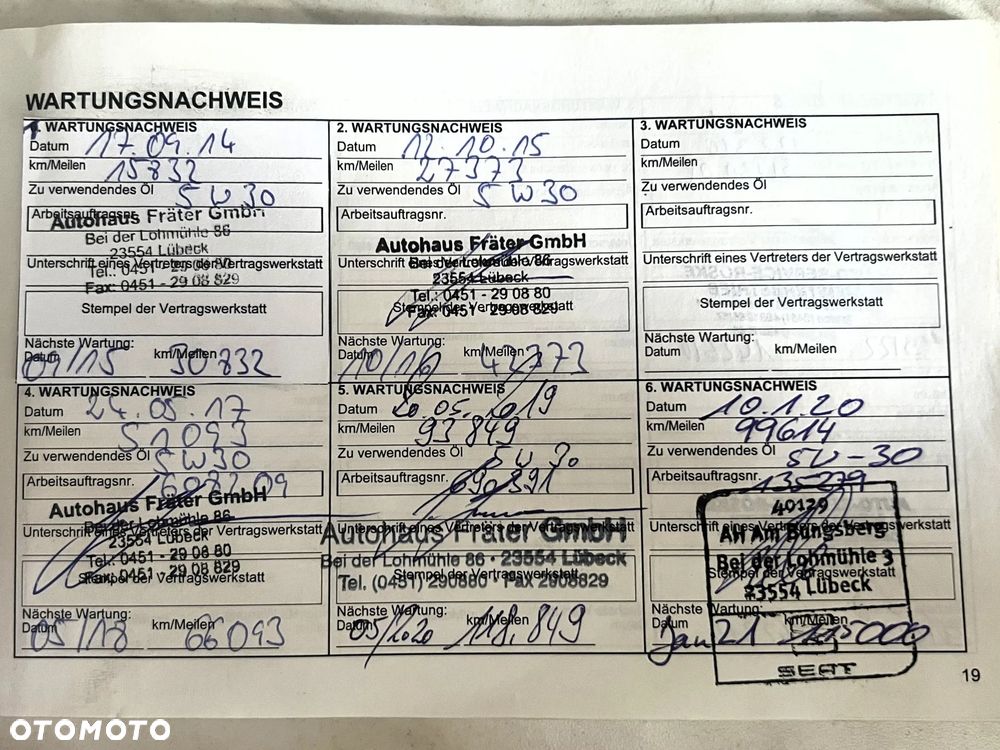 WARTUNGSNACHWEIS
1. WARTUNGSNACHWEIS
Datum 17.09.14
km/Meilen 15832
Zu verwendendes Öl 5W30
Arbeitsauftragsnr.
Autohaus Fräter GmbH
Bei der Lohmühle 86
23554 Lübeck
Unterschrift eines Vertreters der Vertragswerkstatt
Tel.: 0451 - 29 08 80
Fax: 0451 - 29 08 829
Stempel der Vertragswerkstatt
Nächste Wartung:
Datum 09/15 km/Meilen 30832
2. WARTUNGSNACHWEIS
Datum 12.10.15
km/Meilen 27373
Zu verwendendes Öl 5W30
Arbeitsauftragsnr.
Autohaus Fräter GmbH
Bei der Lohmühle 86
Unterschrift eines Vertreters der Vertragswerkstatt
23554 Lübeck
Tel.: 0451 - 29 08 80
Fax: 0451 - 29 08 829
Stempel der Vertragswerkstatt
Nächste Wartung:
Datum 10/16 km/Meilen 42373
3. WARTUNGSNACHWEIS
Datum
km/Meilen
Zu verwendendes Öl
Arbeitsauftragsnr.
Unterschrift eines Vertreters der Vertragswerkstatt
Stempel der Vertragswerkstatt
Nächste Wartung:
Datum km/Meilen
4. WARTUNGSNACHWEIS
Datum 24.05.17
km/Meilen 51093
Zu verwendendes Öl 5W30
Arbeitsauftragsnr.
Autohaus Fräter GmbH
Bei der Lohmühle 86
Unterschrift eines Vertreters der Vertragswerkstatt
23554 Lübeck
Tel.: 0451 - 29 08 80
Fax: 0451 - 29 08 829
Stempel der Vertragswerkstatt
Nächste Wartung:
Datum 05/18 km/Meilen 66093
5. WARTUNGSNACHWEIS
Datum 20.05.2019
km/Meilen 93849
Zu verwendendes Öl 5W30
Arbeitsauftragsnr. 690391
Unterschrift eines Vertreters der Vertragswerkstatt
Autohaus Fräter GmbH
Bei der Lohmühle 86 · 23554 Lübeck
Stempel der Vertragswerkstatt
Tel. (0451) 290880 · Fax 2908829
Nächste Wartung:
Datum 05/2020 km/Meilen 118.849
6. WARTUNGSNACHWEIS
Datum 10.1.20
km/Meilen 99614
Zu verwendendes Öl 5W-30
Arbeitsauftragsnr. 135279
40129
Unterschrift eines Vertreters der Vertragswerkstatt
AH Am Bungsberg
Bei der Lohmühle 3
Stempel der Vertragswerkstatt
23554 Lübeck
Nächste Wartung:
Datum Jan 21 km/Meilen 115000
SEAT
19
OTOMOTO